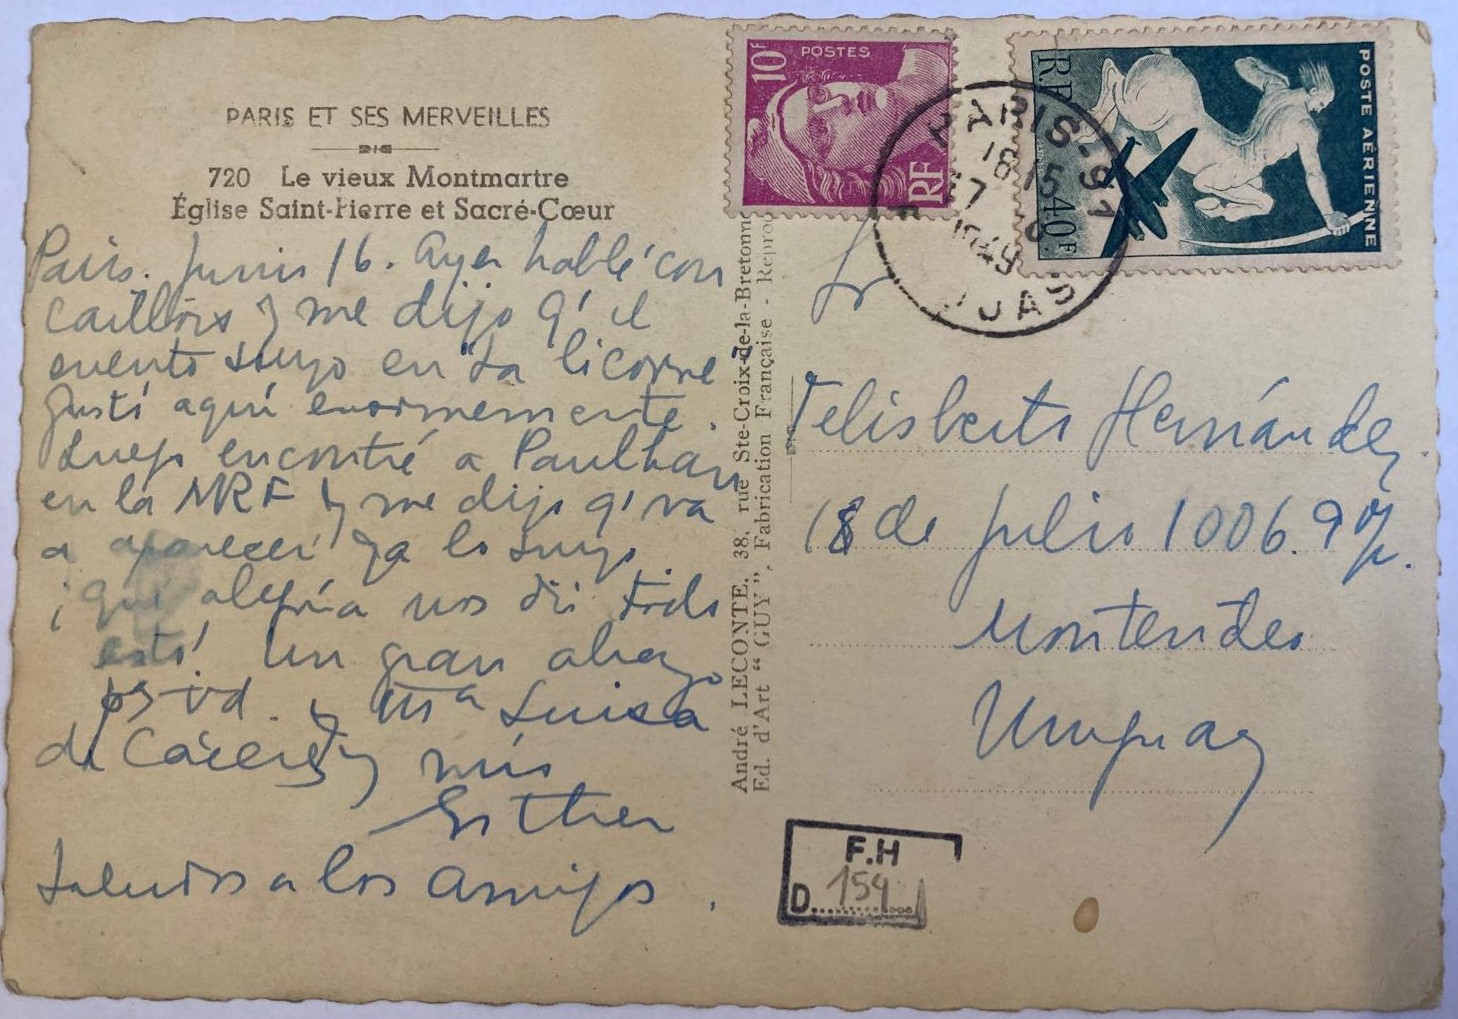 PARIS ET SES MERVEILLES
720 Le vieux Montmartre
Église Saint-Pierre et Sacré-Cœur
Paris. Junio 16. Ayer hablé con
Caillois y me dijo q' el
cuento suyo en "La licorne"
gustó aquí enormemente.
Luego encontré a Paulhan
en la NRF y me dijo q' va
a aparecer ya lo suyo
¡qué alegría nos dió todo
esto! Un gran abrazo
y Mª Luisa
de Cáceres y mío
Esther
Saludos a los amigos.
André LECONTE, 38, rue Ste-Croix-de-la-Bretonn
Ed. d'Art "GUY", Fabrication Française - Repro
10F
POSTES
RF
R.F.
POSTE AÉRIENNE
40F
PARIS-91
18 15
1949
Sr
Felisberto Hernández
18 de Julio 1006. 9º
Montevideo
Uruguay
F.H
D. 154